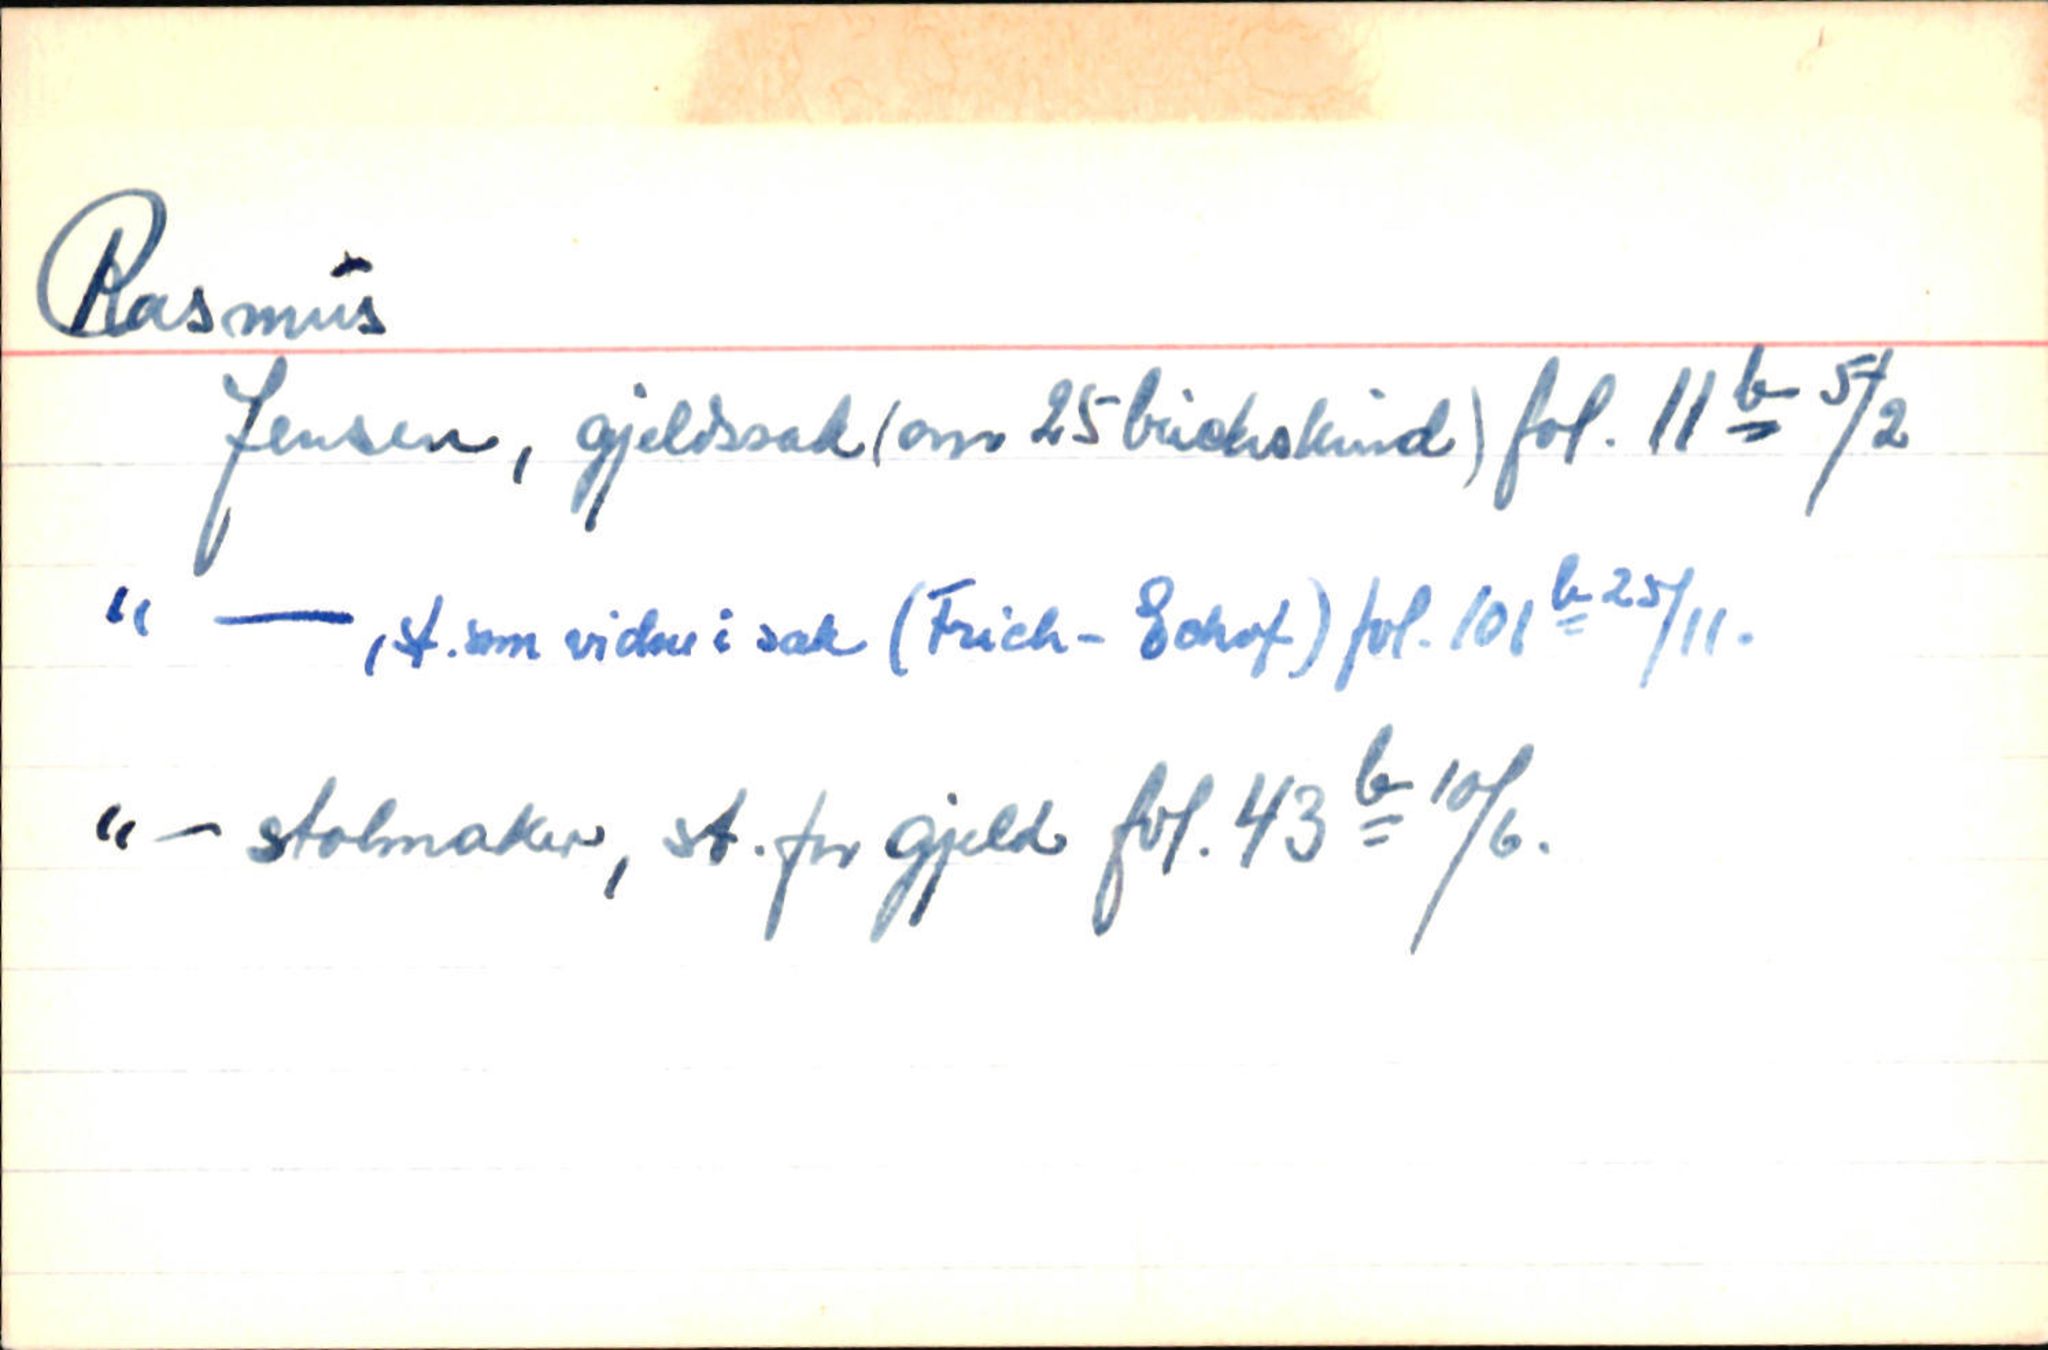 Rasmus
Jensen, gjeldssak (om 25 buckskind) fol. 11b 5/2
" —, st. som vidne i sak (Frich - Echof) fol. 101b 25/11.
" — stolmaker, st. for gjeld fol. 43b 10/6.